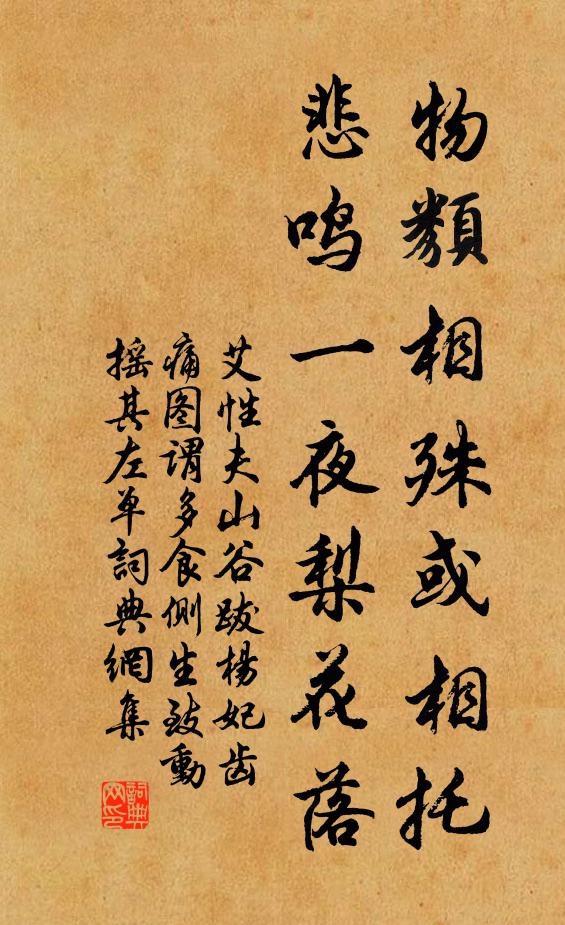 物類相殊或相托
悲鸣一夜梨花落
艾性夫山谷跋楊妃齿
痛图谓多食側生致動
摇其左单詞典網集
詞典
网印